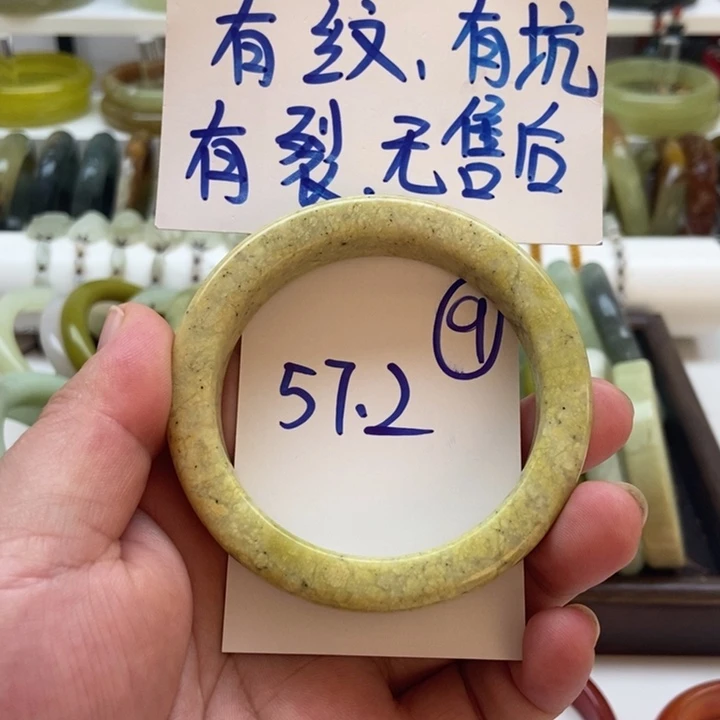 有纹,有坑
有裂.无售后
⑨
57.2